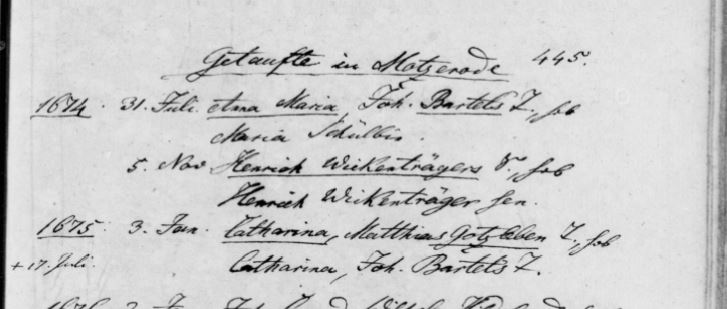 Getaufte in Motzerode 445.
1674. 31. Juli. Anna Maria Joh. Bartels T., sob
Maria Schülbin.
5. Nov Henrich Wickenträgers S., sob
Henrich Wickenträger sen.
1675. 3. Jan. Catharina, Matthias Götzleben T., sob
+ 17. Juli. Catharina, Joh. Bartels T.